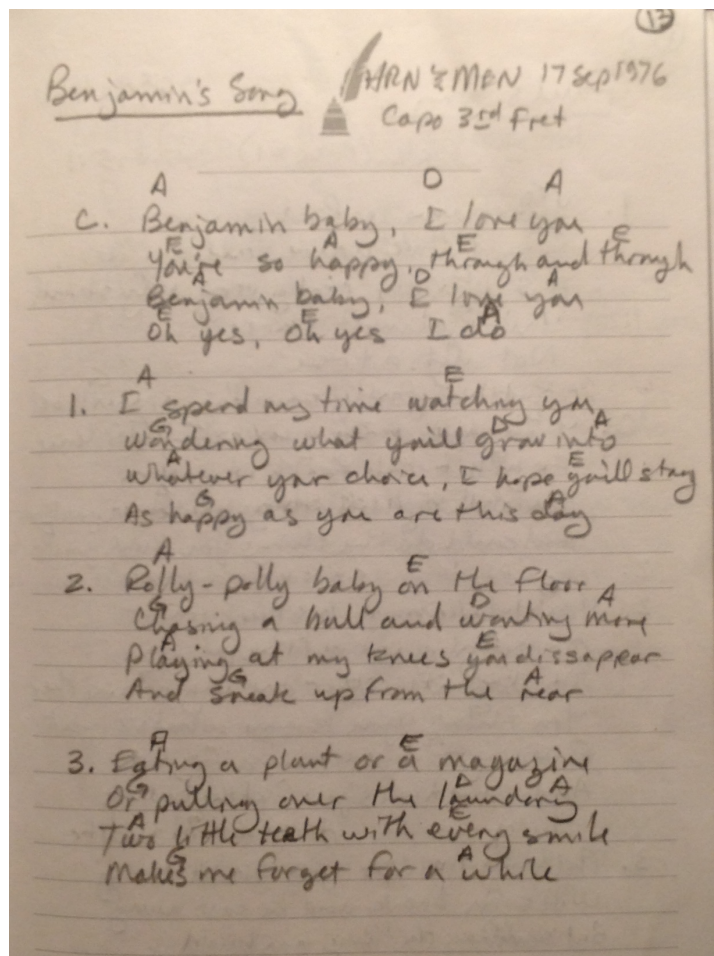 13
Benjamin's Song
HRN & MEN 17 Sep 1976
Capo 3rd Fret
A D A
C. Benjamin baby, I love you
E A E E
You're so happy, through and through
A D A
Benjamin baby, I love you
E E A
Oh yes, Oh yes I do
A E
1. I spend my time watching you
G D A
wondering what you'll grow into
A E
Whatever your choice, I hope you'll stay
G A
As happy as you are this day
A E
2. Rolly-polly baby on the floor
G D A
Chasing a ball and wanting more
A E
Playing at my knees you dissappear
G A
And sneak up from the rear
A E
3. Eating a plant or a magazine
G D A
Or pulling over the laundery
A E
Two little teeth with every smile
G A
Makes me forget for a while